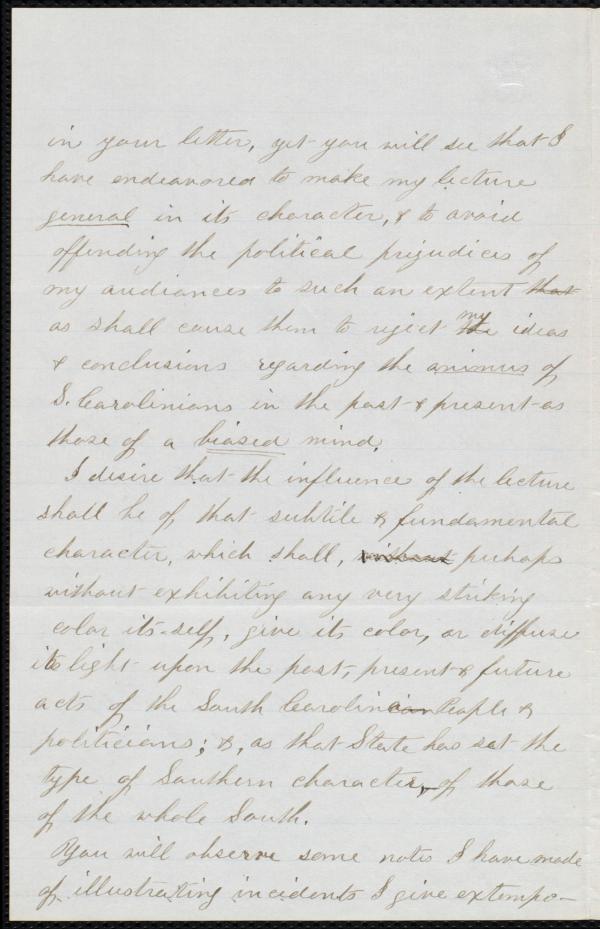 in your letter, yet you will see that I
have endeavored to make my lecture
general in its character, & to avoid
offending the political prejudices of
my audiances to such an extent that
as shall cause them to reject the my ideas
& conclusions regarding the animus of
S. Carolinians in the past & present as
those of a biased mind.
I desire that the influence of the lecture
shall be of that subtile & fundamental
character, which shall, without perhaps
without exhibiting any very striking
color its-self, give its color, or diffuse
its light upon the past, present & future
acts of the South Carolinian People &
politicians; &, as that State has set the
type of Southern character, of those
of the whole South.
You will observe some notes I have made
of illustrating incidents I give extempo-